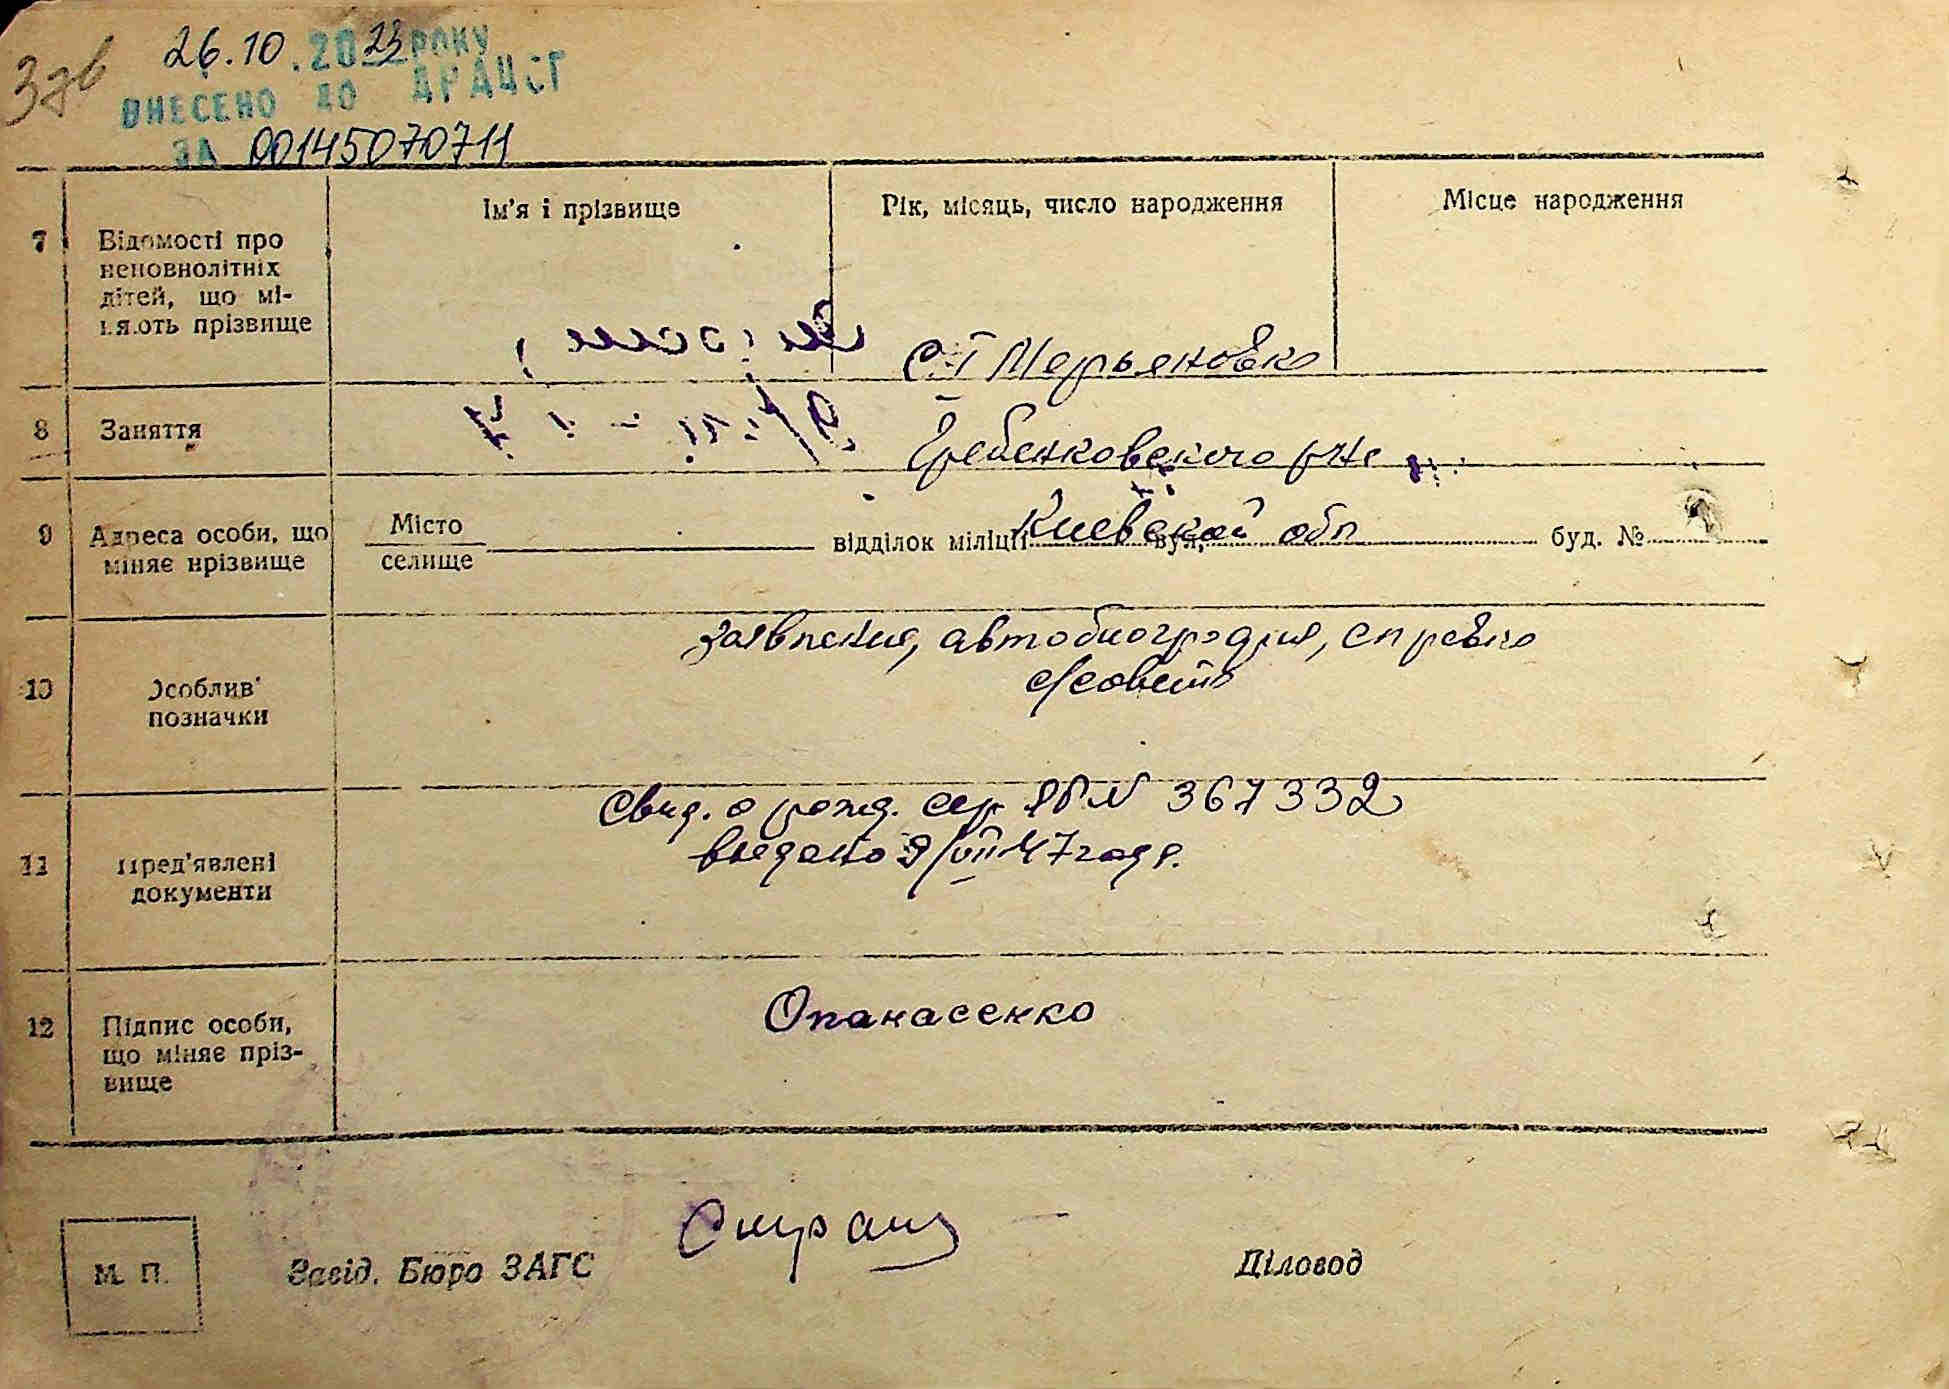 Ззв
26.10.2023 РОКУ
ВНЕСЕНО ДО ДРАЦСГ
ЗА 00145070711
Ім'я і прізвище
Рік, місяць, число народження
Місце народження
7
Відомості про
неповнолітніх
дітей, що мі-
няють прізвище
с. Марьяновка
8
Заняття
Гребенковского р-на
9
Адреса особи, що
міняє прізвище
Місто
селище
відділок міліції
вул.
буд. №
Киевской обл
10
Особливі
позначки
заявления, автобиография, справка
с/совета
11
Пред'явлені
документи
Свид. о рожд. сер № 367332
выдано 9/VII 47 года.
12
Підпис особи,
що міняє пріз-
вище
Опанасенко
М. П.
Завід. Бюро ЗАГС
Діловод